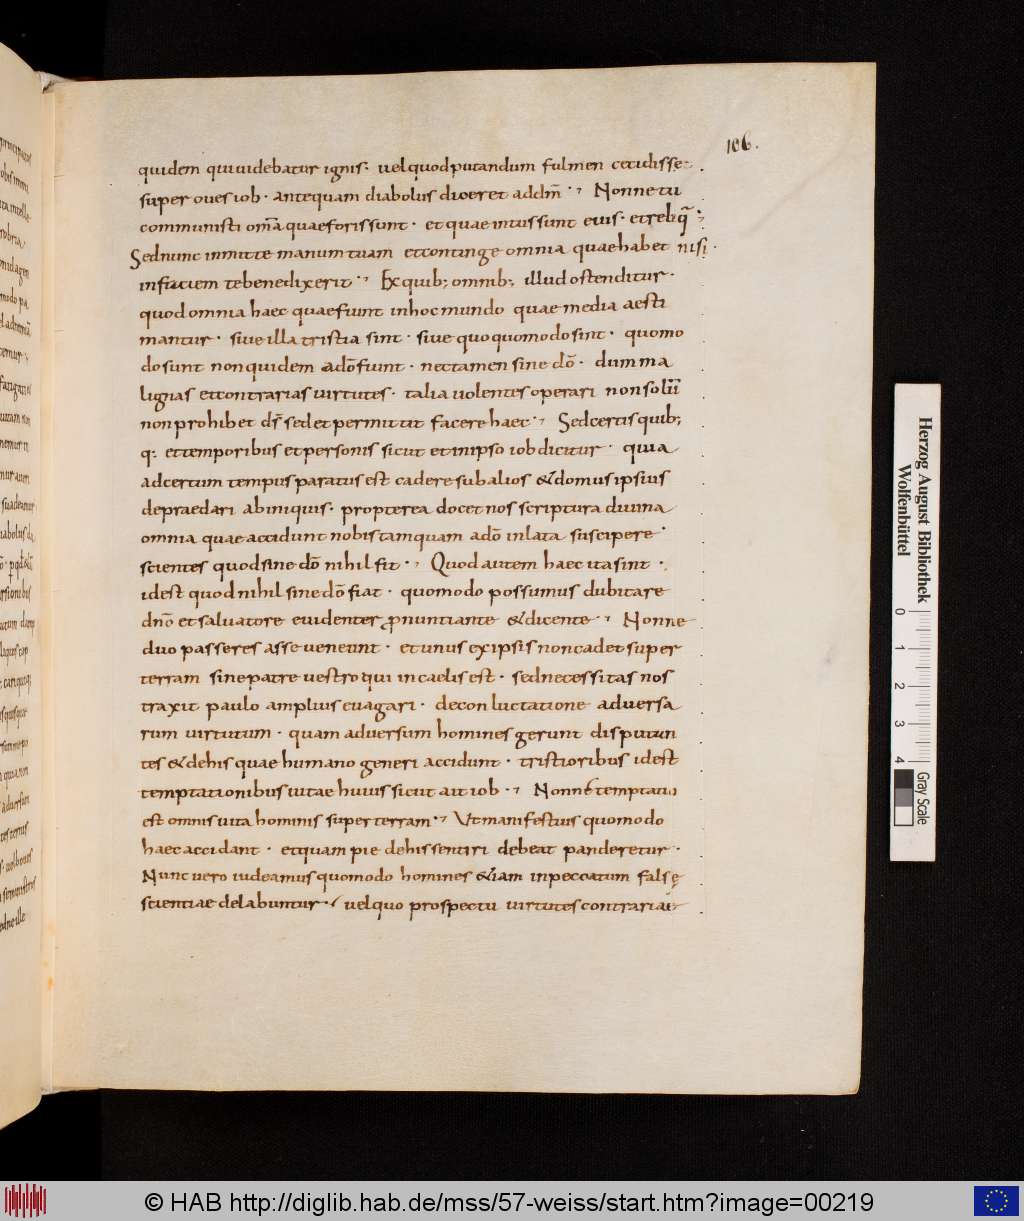 106.
quidem qui uidebatur ignis · uel quod putandum fulmen cecidisse ·
super oues iob · antequam diabolus diceret ad dm̄ · Nonne tu
communisti om̄a quae foris sunt · et quae intus sunt eius · et reliq̄ ·
Sed nunc inmitte manum tuam et continge omnia quae habet nisi ·
in faciem te benedixerit · Ex quib; omnib; illud ostenditur ·
quod omnia haec quae fiunt in hoc mundo quae media aesti
mantur · siue illa tristia sint · siue quoquomodo sint · quomo
do sunt non quidem a dō fiunt · nec tamen sine dō · dum ma
lignas et contrarias uirtutes · talia uolentes operari non solū
non prohibet dr̄ sed et permittit facere haec · Sed certis quib;
q: et temporibus et personis sicut et in ipso iob dicitur · quia
ad certum tempus paratus est cadere sub alios & domus ipsius
depraedari ab iniquis · propterea docet nos scriptura diuina
omnia quae accidunt nobis tamquam a dō inlata suscipere ·
scientes quod sine dō nihil fit · Quod autem haec ita sint ·
id est quod nihil sine dō fiat · quomodo possumus dubitare
dn̄o et saluatore euidenter ꝓnuntiante & dicente · Nonne
duo passeres asse ueneunt · et unus ex ipsis non cadet super
terram sine patre uestro qui in caelis est · sed necessitas nos
traxit paulo amplius euagari · de conluctatione aduersa
rum uirtutum · quam aduersum homines gerunt disputan
tes & de his quae humano generi accidunt · tristioribus id est
temptationibus uitae huius sicut ait iob · Nonne temptatio
est omnis uita hominis super terram · Ut manifestius quomodo
haec accidant · et quam pie de his sentiri debeat panderetur ·
Nunc uero uideamus quomodo homines & iam in peccatum falsę
scientiae delabuntur · uel quo prospectu uirtutes contrariae
Herzog August Bibliothek
Wolfenbüttel
0 1 2 3 4
Gray Scale
© HAB http://diglib.hab.de/mss/57-weiss/start.htm?image=00219